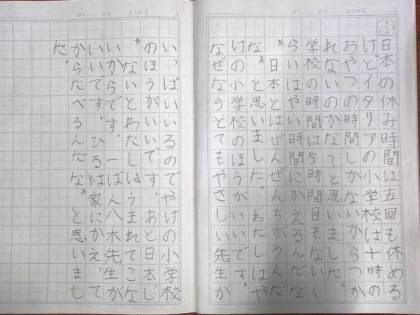 日本の休み時間は五回も休める
けどイタリアの小学校は十時の
おやつの時間しかないからつか
れないのかな?と思いました。
学校の時間は5時間目もなく
らいはやい時間にかえるんだな
あ。日本とはぜんぜんちがうんだな
なあと思いました。わたしはや
けの小学校のほうがいいです。
なぜならとてもやさしい先生が
いっぱいいるのでやけの小学校
のほうがいいです。あと日本じ
ゃないとわたしのうまれ
いからです。一ばん八木先生が
いいです。ひるは家にかえって
からたべるんだなあと思いまし
た。